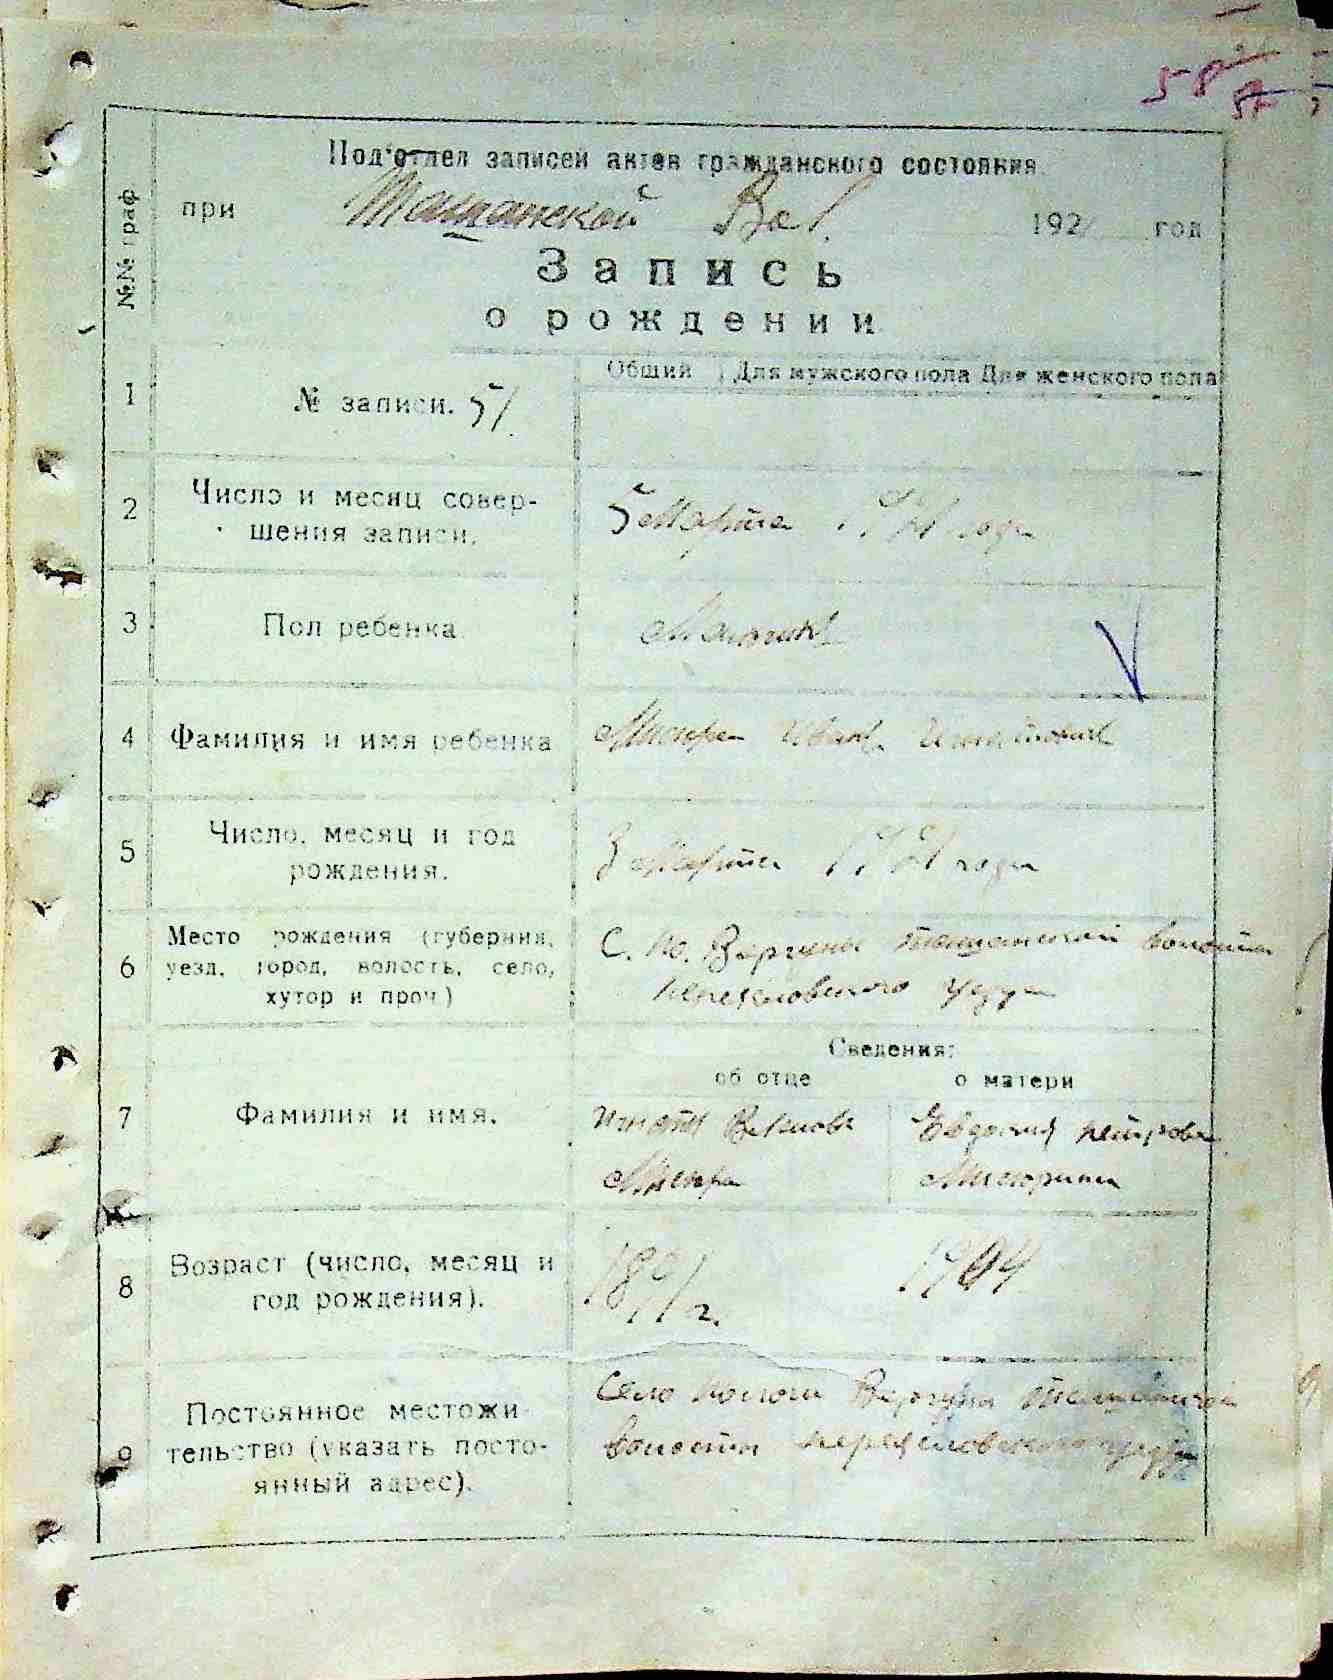 58
Под'отдел записей актов гражданского состояния
при Ташанской Вол. 1921 год
№№ граф
Запись
о рождении
Общий Для мужского пола Для женского пола
1 № записи. 51
2 Число и месяц совер-
шения записи. 5 Марта 1921 года
3 Пол ребенка Мальчик
4 Фамилия и имя ребенка Мисюра Иван Игнатович
5 Число, месяц и год
рождения. 3 Марта 1921 года
Место рождения (губерния, С. По. Вергуны Ташанской волости
6 уезд, город, волость, село,
хутор и проч) Переяловского уезда
Сведения:
об отце о матери
7 Фамилия и имя. Игнат Евдокия Петрова
Мисюра Мисюрина
8 Возраст (число, месяц и
год рождения). 1891 г. 1904
Село Пологи Вергуны Ташанской
Постоянное местожи-
9 тельство (указать посто- волости Переяловского уезда
янный адрес).